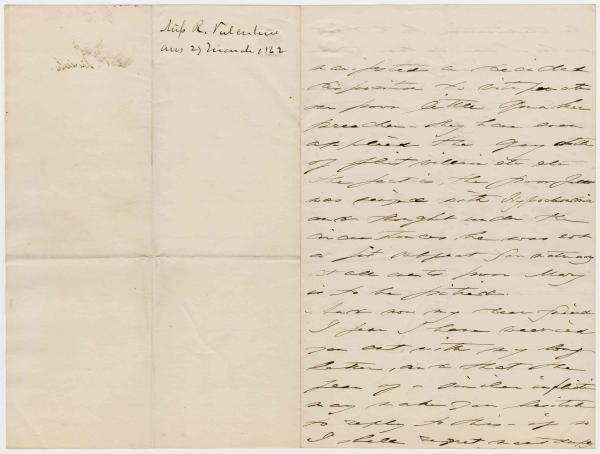 Miss R. Valentine
ans 27 March 1862
a decided
disposition to vituperate
our poor little Quaker
preacher - they have even
applied the Gay
of flirt villain etc etc
The fact is, the poor
was seized with Hypochondria
and thought under the
circumstances he was not
a fit subject for matrimony
at all events poor Mary
is to be pitied.
And now my dear friend
I fear I have wearied
you out with my long
letter, and that the
fear of a similar infliction
may make you hesitate
to reply to this - if so
I shall regret most deeply